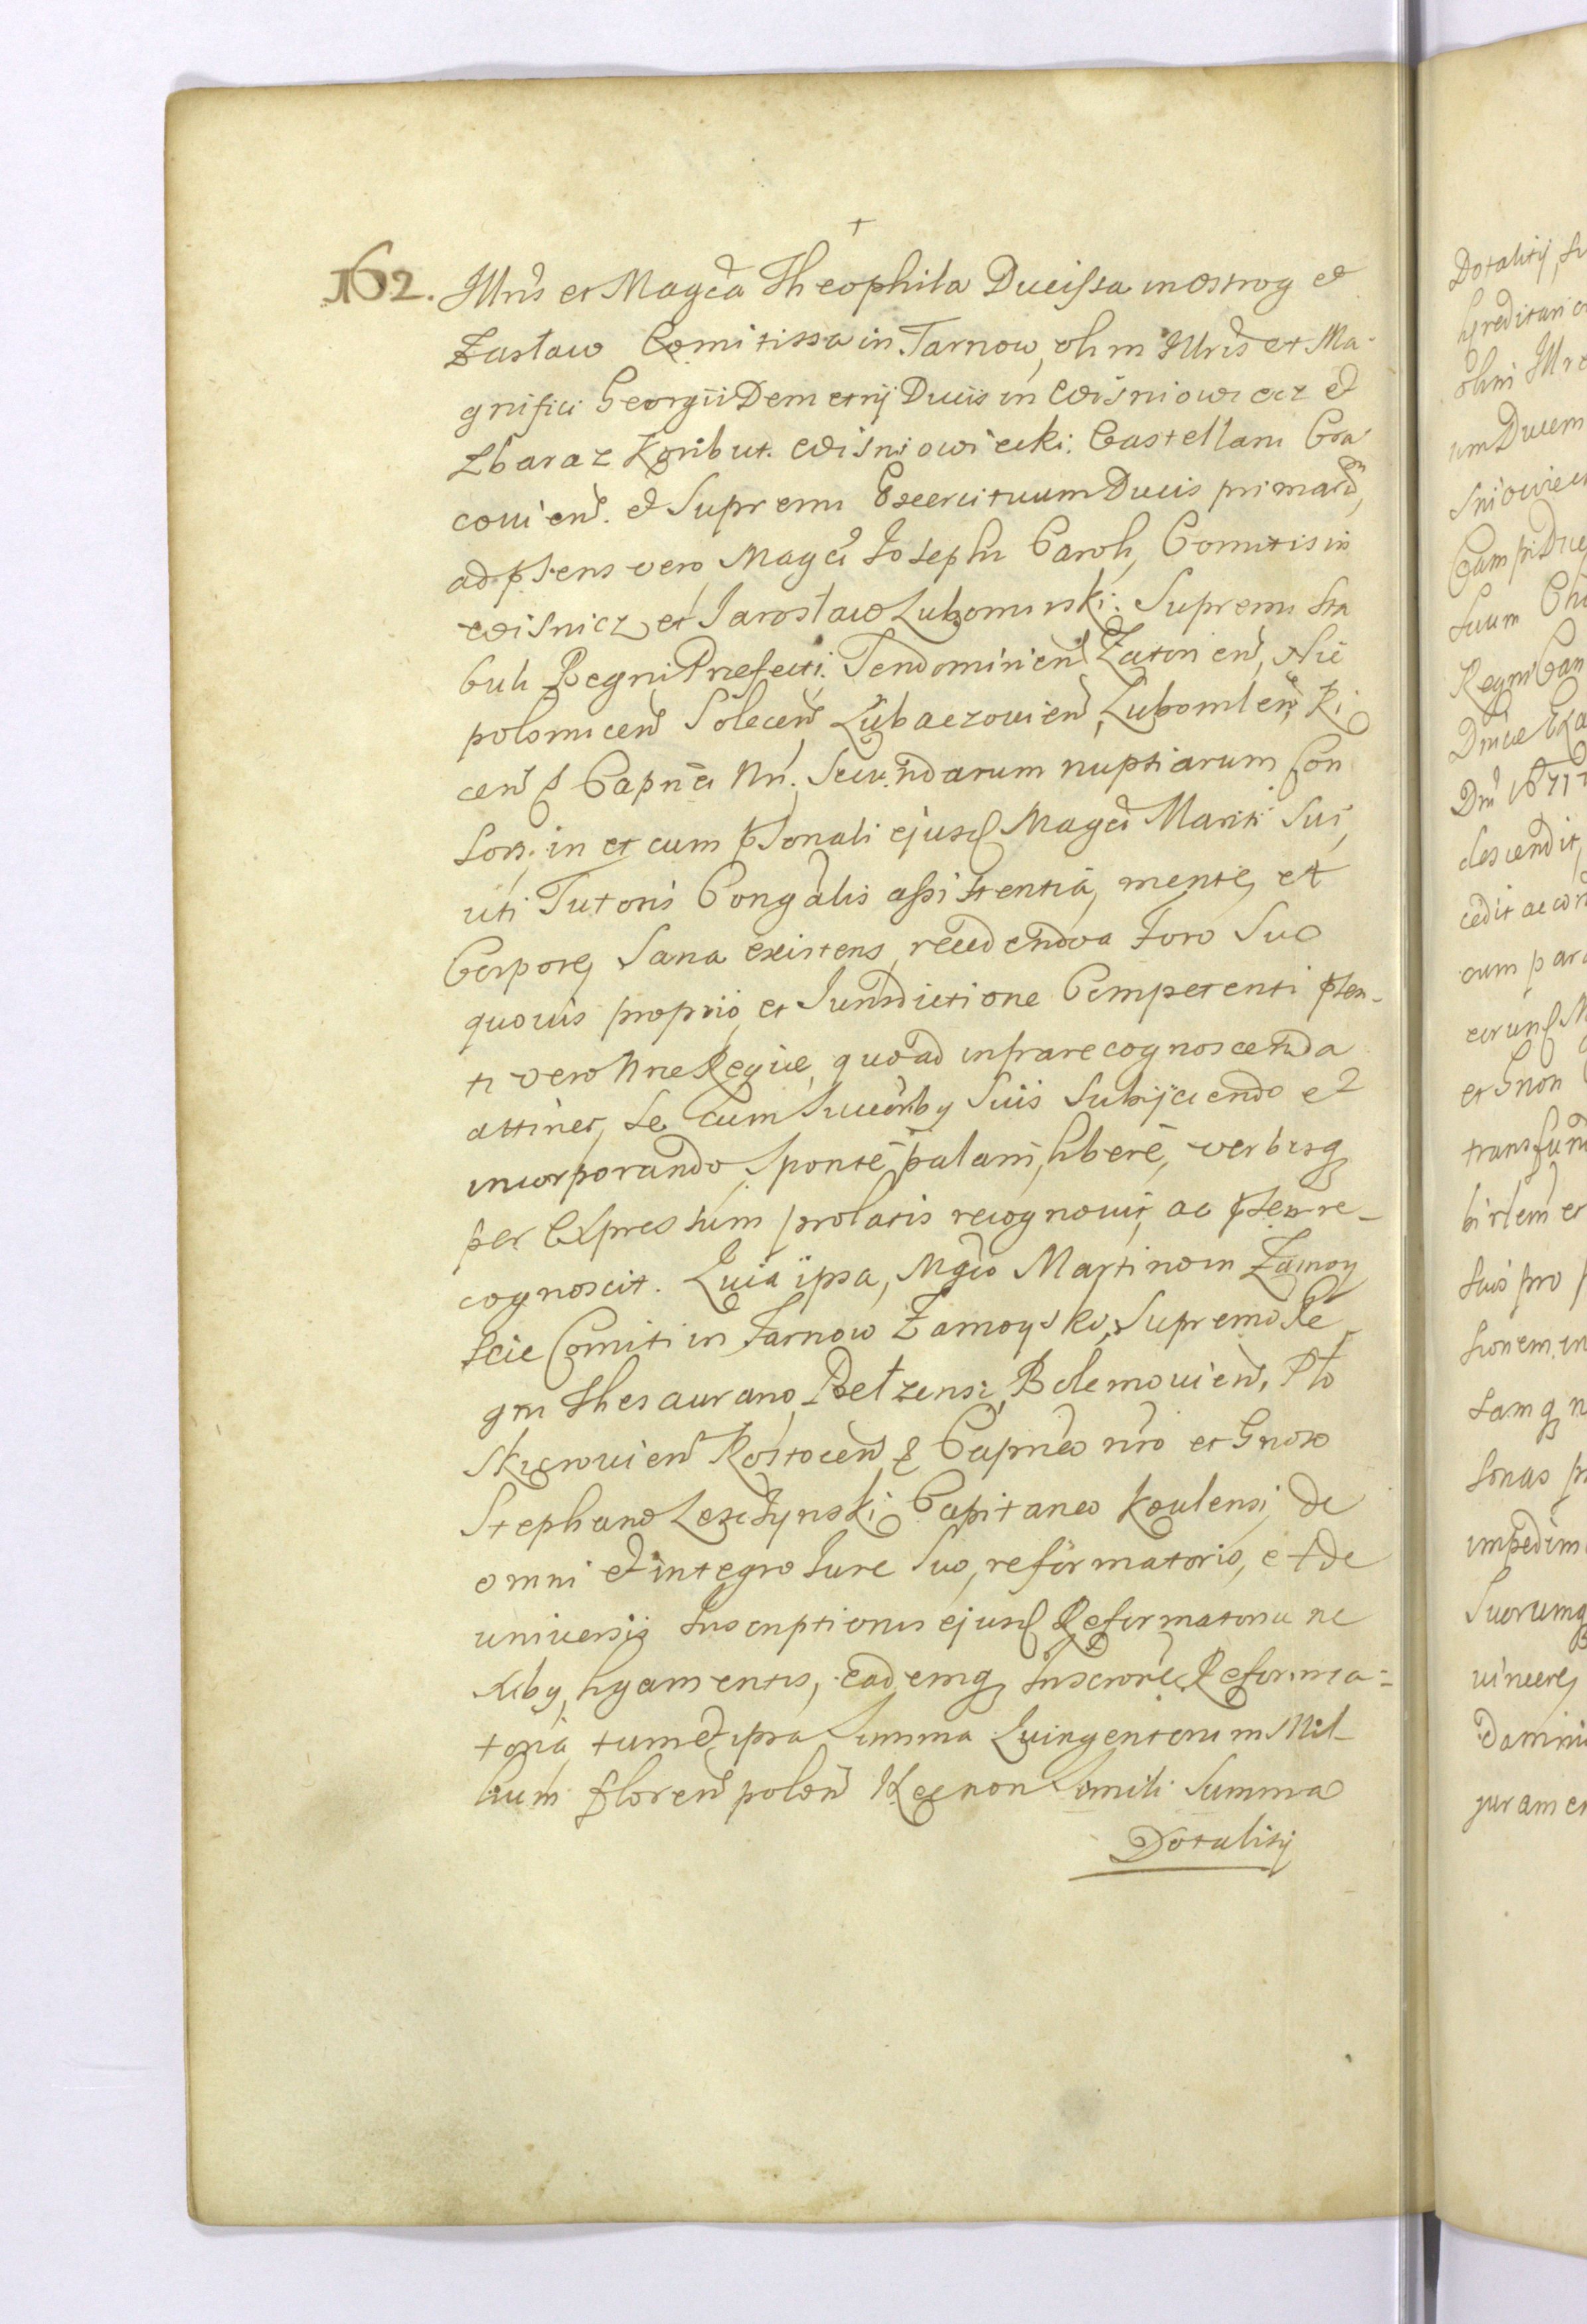 +
162. Illris et Magca Theophila Ducissa in Ostrog et
Zasław Comitissa in Tarnow, olim Illris et Ma-
gnifici Georgii Demetrij Ducis in Wisniowiecz et
Zbaraz Koribut Wisniowiecki. Castellani Cra
covien. et Supremi Exercituum Ducis primarū,
ad pñtens vero Magci Josephi Caroli, Comitis in
Wisnicz et Jarosław Lubomirski. Supremi Sta
buli Regni Praefecti. Sendomirien Zatorien, Nie
polomicen Solecen Lubaczovien, Lubomlen, Ri
cen & Capnei Nri. Secundarum nuptiarum Con
sors. in et cum psonali ejusd Magci Mariti Sui,
uti Tutoris Congalis assistentiâ, mente, et
Corpore Sana existens, recedendo a foro Suo
quovis proprio, et Jurisdictione Competenti pñtem-
ti vero Nrae Regiae, quo ad infra recognoscenda
attinet, Se cum Succorib9 Suis Subijciendo et
incorporando, Sponte palam, libere, verbisq
per Expressum prolatis recognovit, ac pñten re-
cognoscit. Quia ipsa, Mgco Martino in Zamoy
scie Comiti in Tarnow Zamoyski, Supremo Re
gni Thesaurario, Bełzensi, Bolemovien, Pło
skirovien Rostocen & Capneo nro et Gnoso
Stephano Leszczynski Capitaneo Kovlensi, de
omni et integro Jure Suo, reformatorio, et de
universis Inscriptionis ejusd Reformatoriae ne
xib9, ligamentis, eademq Inscrone Reforma=
toria, tum et ipsa Summa Quingentorum Mil-
lium floren polon Nec non Simili Summa
Dotalitij